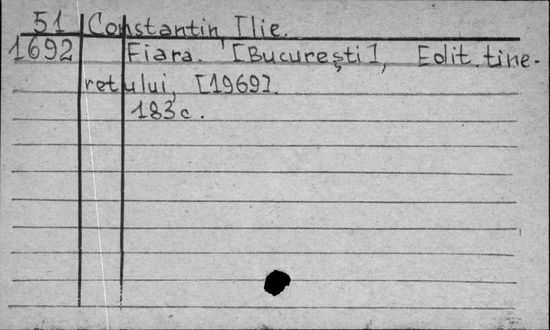 51 Constantin, Ilie.
1692 Fiara. [București], Edit. tine-
retului, [1969].
183 c.